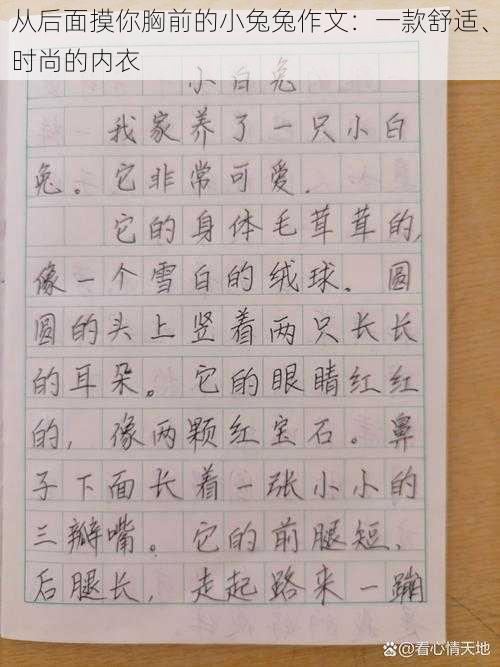 从后面摸你胸前的小兔兔作文：一款舒适、
时尚的内衣
小白兔
我家养了一只小白
兔。它非常可爱.
它的身体毛茸茸的,
像一个雪白的绒球。圆
圆的头上竖着两只长长
的耳朵。它的眼睛红红
的,像两颗红宝石。鼻
子下面长着一张小小的
三瓣嘴。它的前腿短、
后腿长,走起路来一蹦
@看心情天地